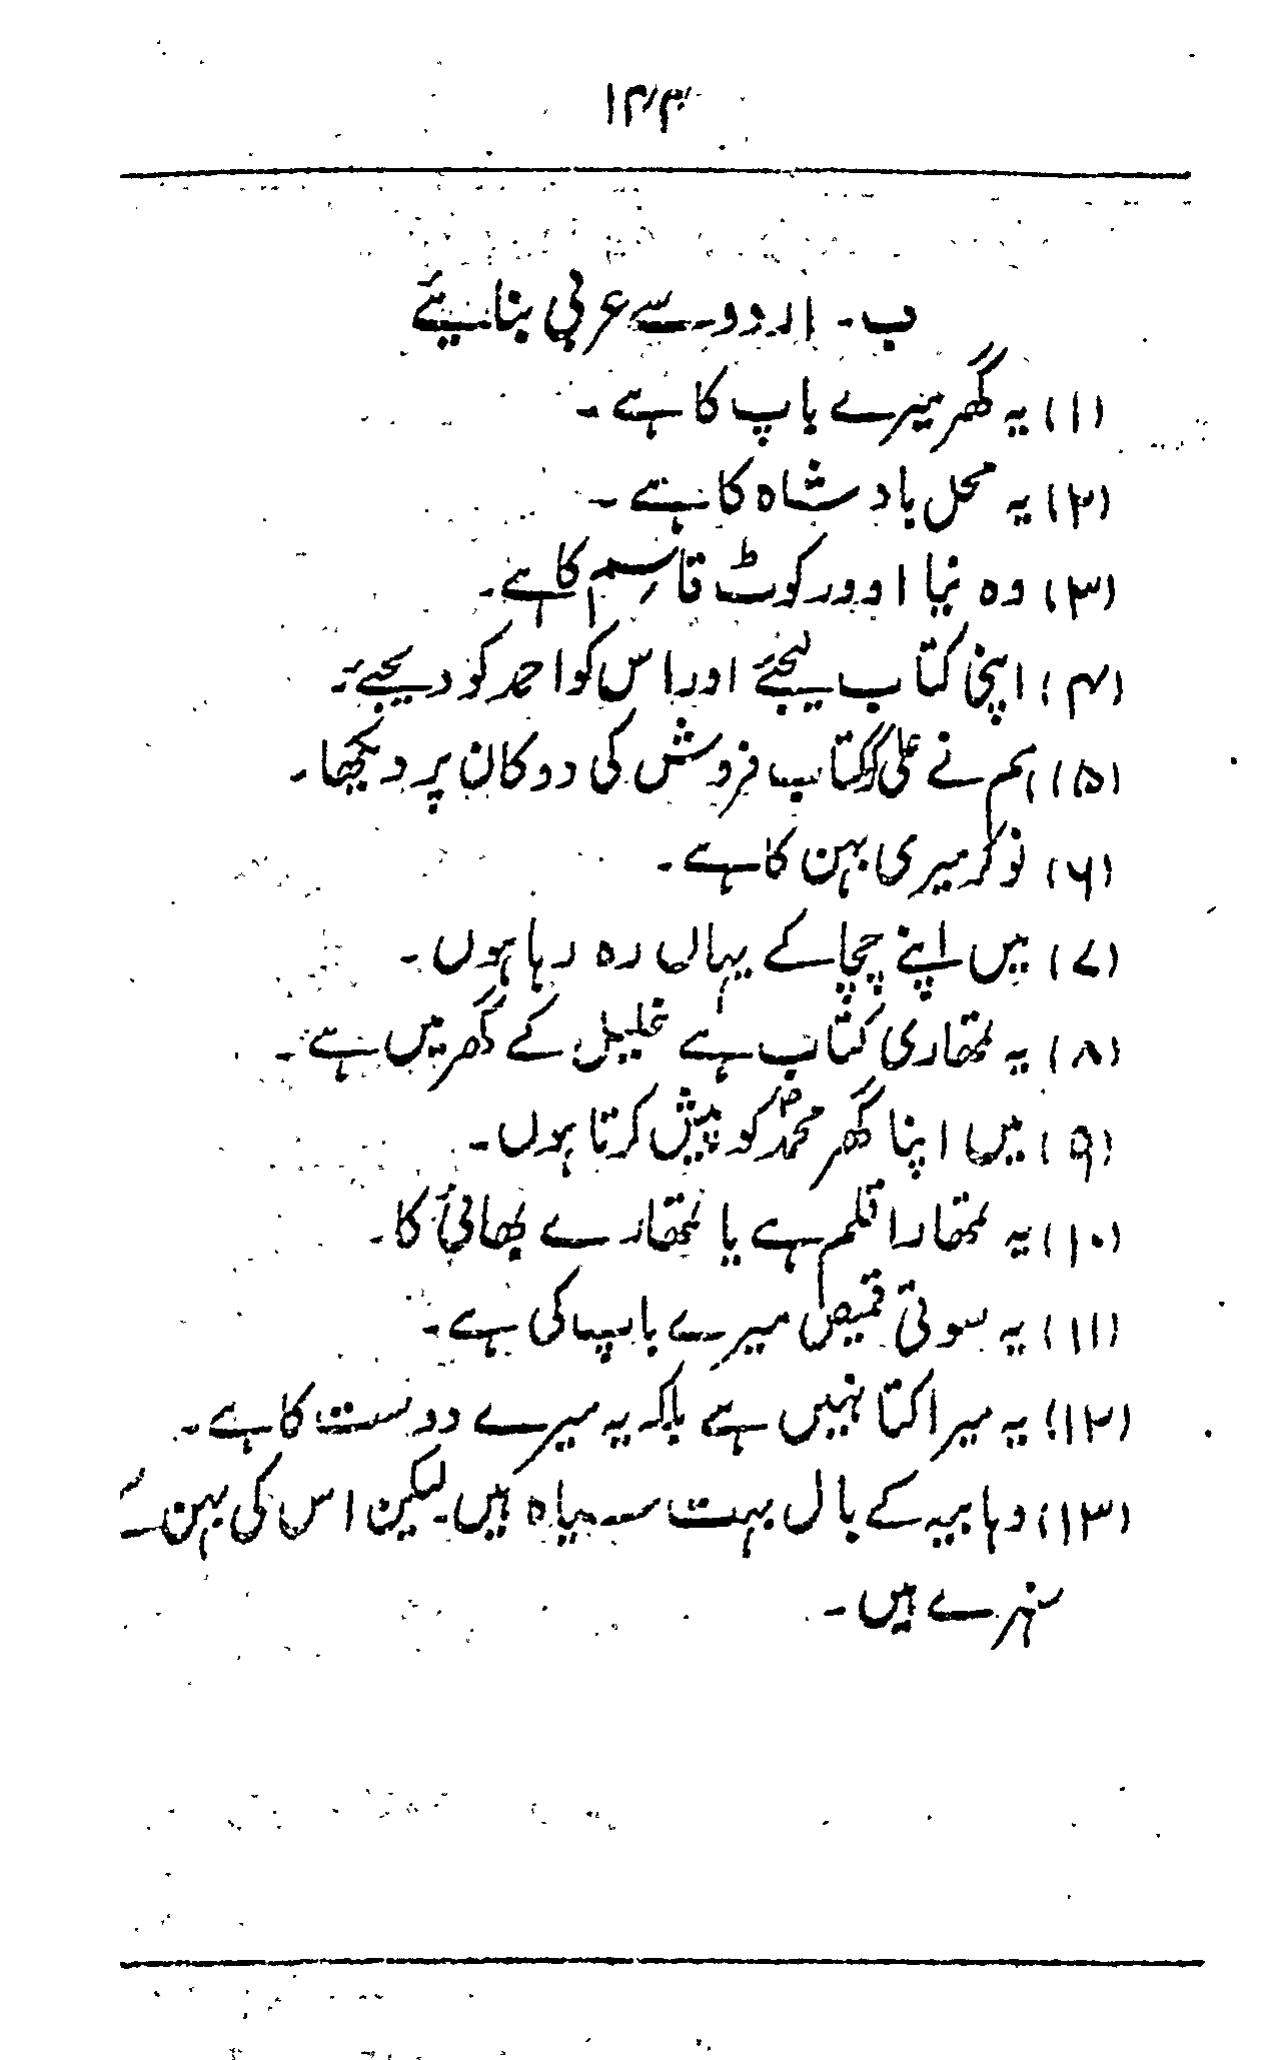 ۱۴۳
ب۔ اردو سے عربی بنائیے
(۱) یہ گھر میرے باپ کا ہے۔
(۲) یہ محل بادشاہ کا ہے۔
(۳) وہ نیا اوورکوٹ قاسم کا ہے۔
(۴) اپنی کتاب لیجئے اور اس کو احمد کو دیجئے۔
(۵) ہم نے علی کو کتاب فروش کی دوکان پر دیکھا۔
(۶) نوکر میری بہن کا ہے۔
(۷) میں اپنے چچا کے یہاں رہ رہا ہوں۔
(۸) یہ تمھاری کتاب ہے خلیل کے گھر میں ہے۔
(۹) میں اپنا گھر محمدؐ کو پیش کرتا ہوں۔
(۱۰) یہ تمھارا قلم ہے یا تمھارے بھائی کا۔
(۱۱) یہ سوتی قمیص میرے باپ کی ہے۔
(۱۲) یہ میرا کتا نہیں ہے بلکہ یہ میرے دوست کا ہے۔
(۱۳) وہابیہ کے بال بہت سیاہ ہیں۔ لیکن اس کی بہن کے
سنہرے ہیں۔